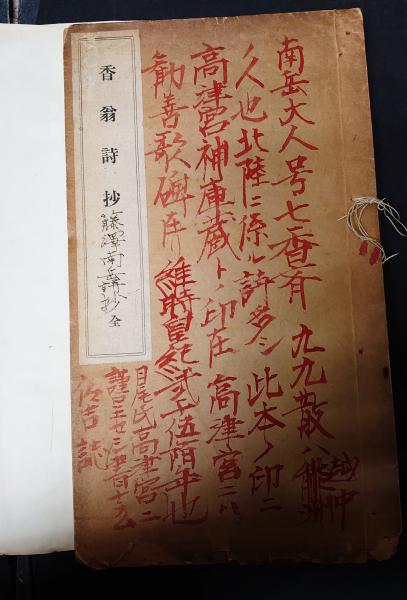 南岳大人号七香斎 九九散人
越中
ノ人也北陸ニ係ル詩多シ 此本ノ印ニ
高津宮神庫蔵トノ印在 高津宮ニハ
勧善歌碑在リ 維時皇紀弐千伍陌年也
高津宮ニ
謹呈
佐吉誌
香翁詩抄
藤澤南岳詩抄
全